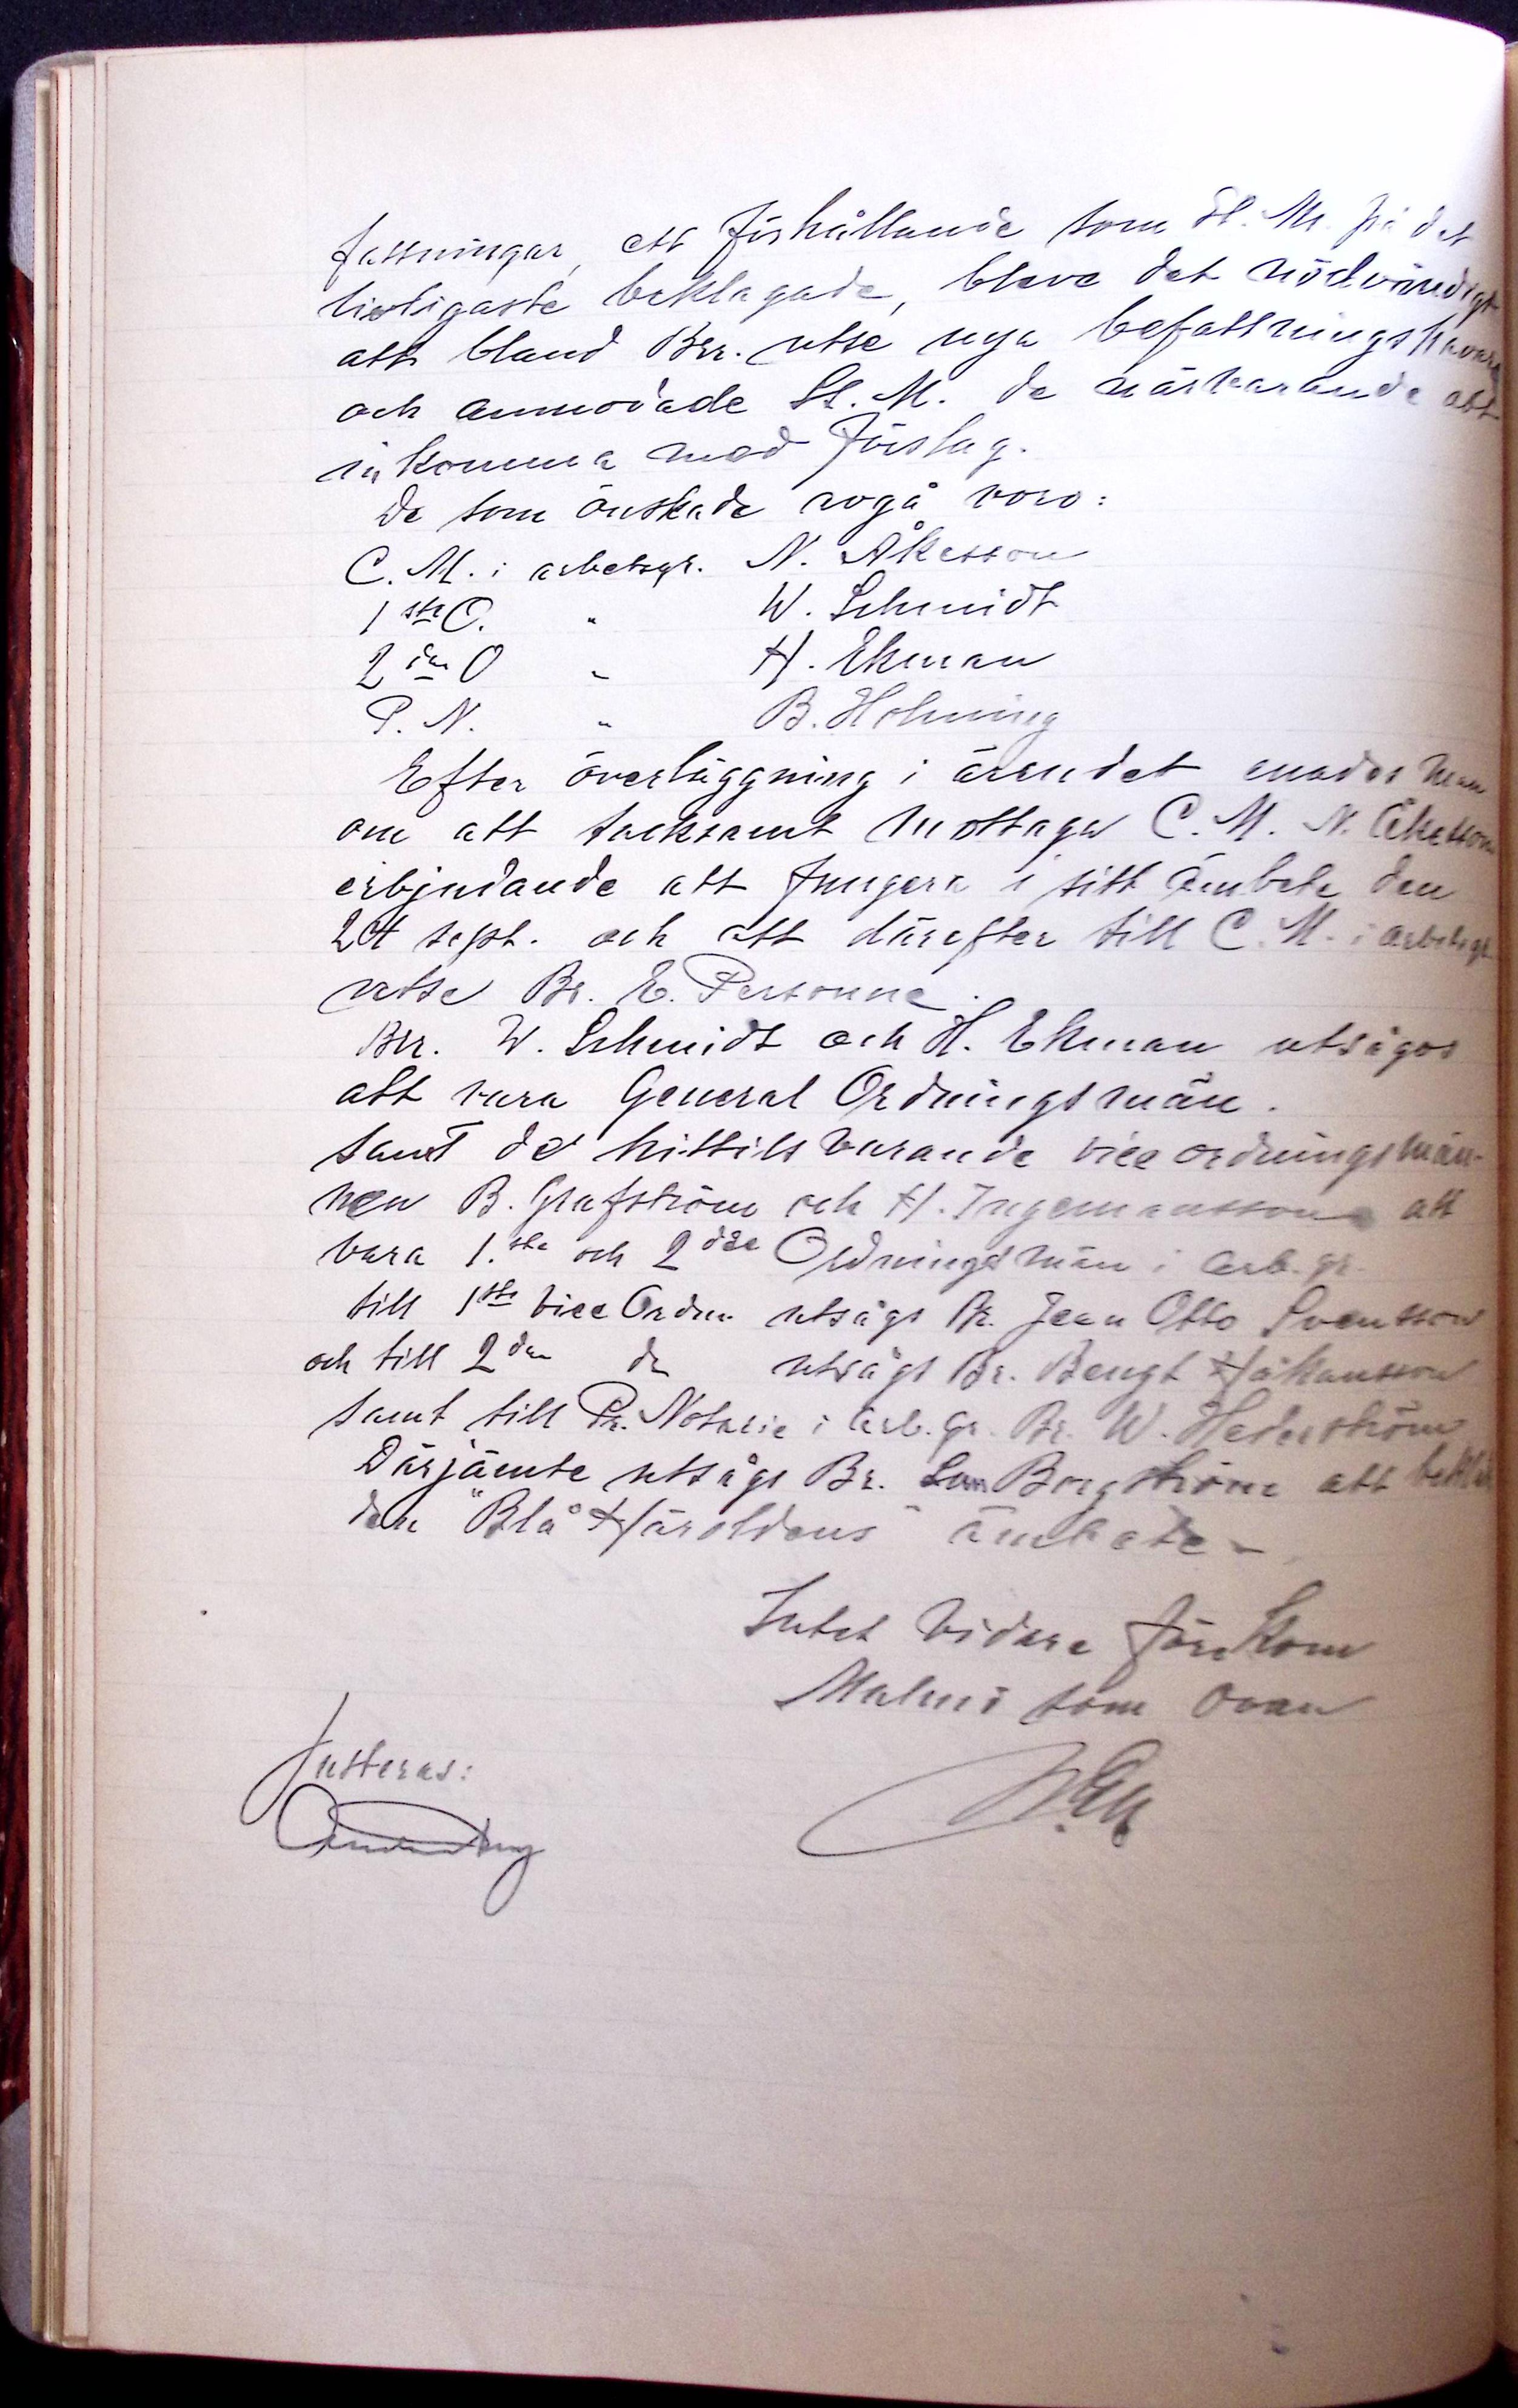 fattningar, ett förhållande som St. M. på det
livligaste beklagade, bleve det nödvändigt
att bland Brr. utse nya befattningshavare
och anmodade St. M. de närvarande att
inkomma med förslag.
De som önskade avgå voro:
C. M. i arbetsgr. N. Åkesson
1ste O. " W. Schmidt
2dre O " H. Ekman
P. N. " B. Holming
Efter överläggning i ärendet enades man
om att tacksamt mottaga C. M. N. Åkessons
erbjudande att fungera i sitt ämbete den
24 sept. och att därefter till C. M. i arbetsgr.
utse Br. E. Personne.
Brr. W. Schmidt och H. Ekman utsågos
att vara General Ordningsmän.
samt de hittills varande vice ordningsmän-
nen B. Grafström och H. Ingemansson att
vara 1.sta och 2dre Ordningsmän i arb. gr.
till 1ste vice Ordn. utsågs Br. Jean Otto Svensson
och till 2dre do utsågs Br. Bengt Håkansson
samt till Pr. Notarie i arb. gr. Br. W. Hederström
Därjämte utsågs Br. Borgström att bekläda
den "Blå Häroldens" ämbete -
Intet vidare förekom
Malmö som ovan
Justeras: